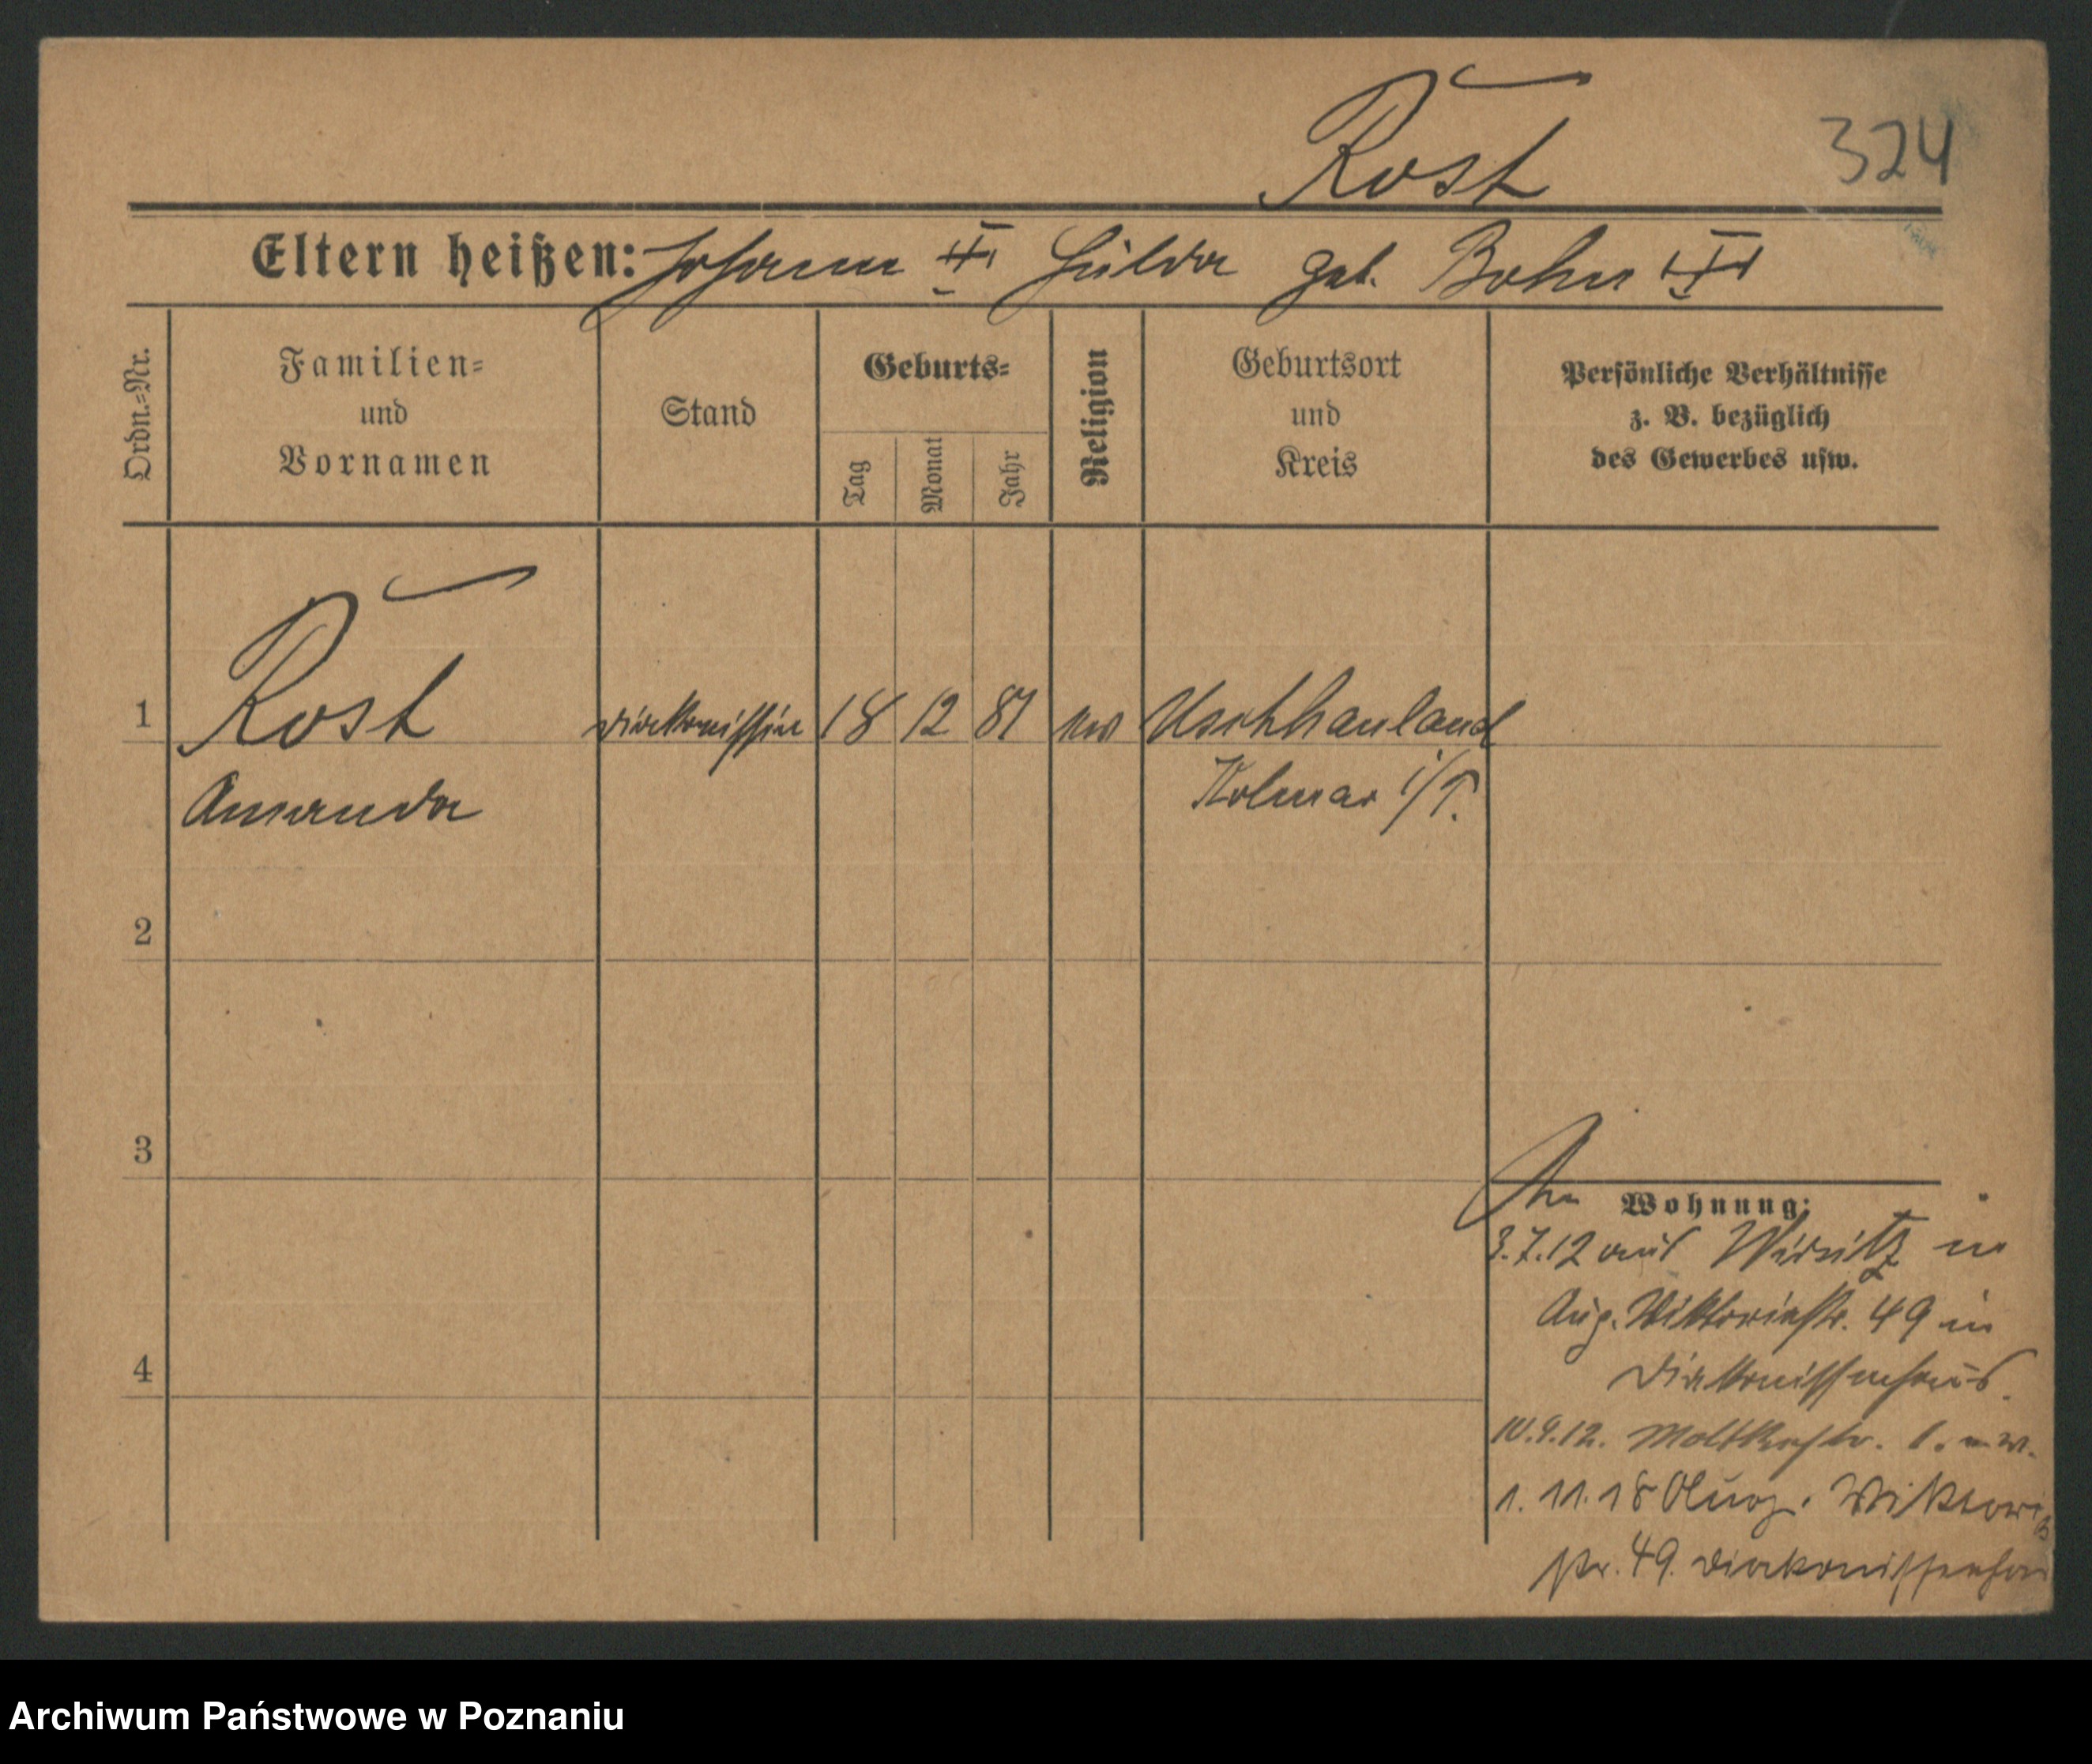 Rost
324
Eltern heißen: Johann Hulda geb. Bohn
Ordn.-Nr.
Familien-
und
Vornamen
Stand
Geburts-
Tag
Monat
Jahr
Religion
Geburtsort
und
Kreis
Persönliche Verhältnisse
z. B. bezüglich
des Gewerbes usw.
1 Rost Diakonissin 18 12 81 Uschhauland
Amanda Kolmar i/P.
2
3
4
Wohnung:
3.7.12 aus Wirsitz in
Aug. Viktoriastr. 49 in
Diakonissenhaus.
10.9.12. Moltkestr. 1.
1. 11. 18 Aug. Viktoria
str. 49. Diakonissenhau
Archiwum Państwowe w Poznaniu